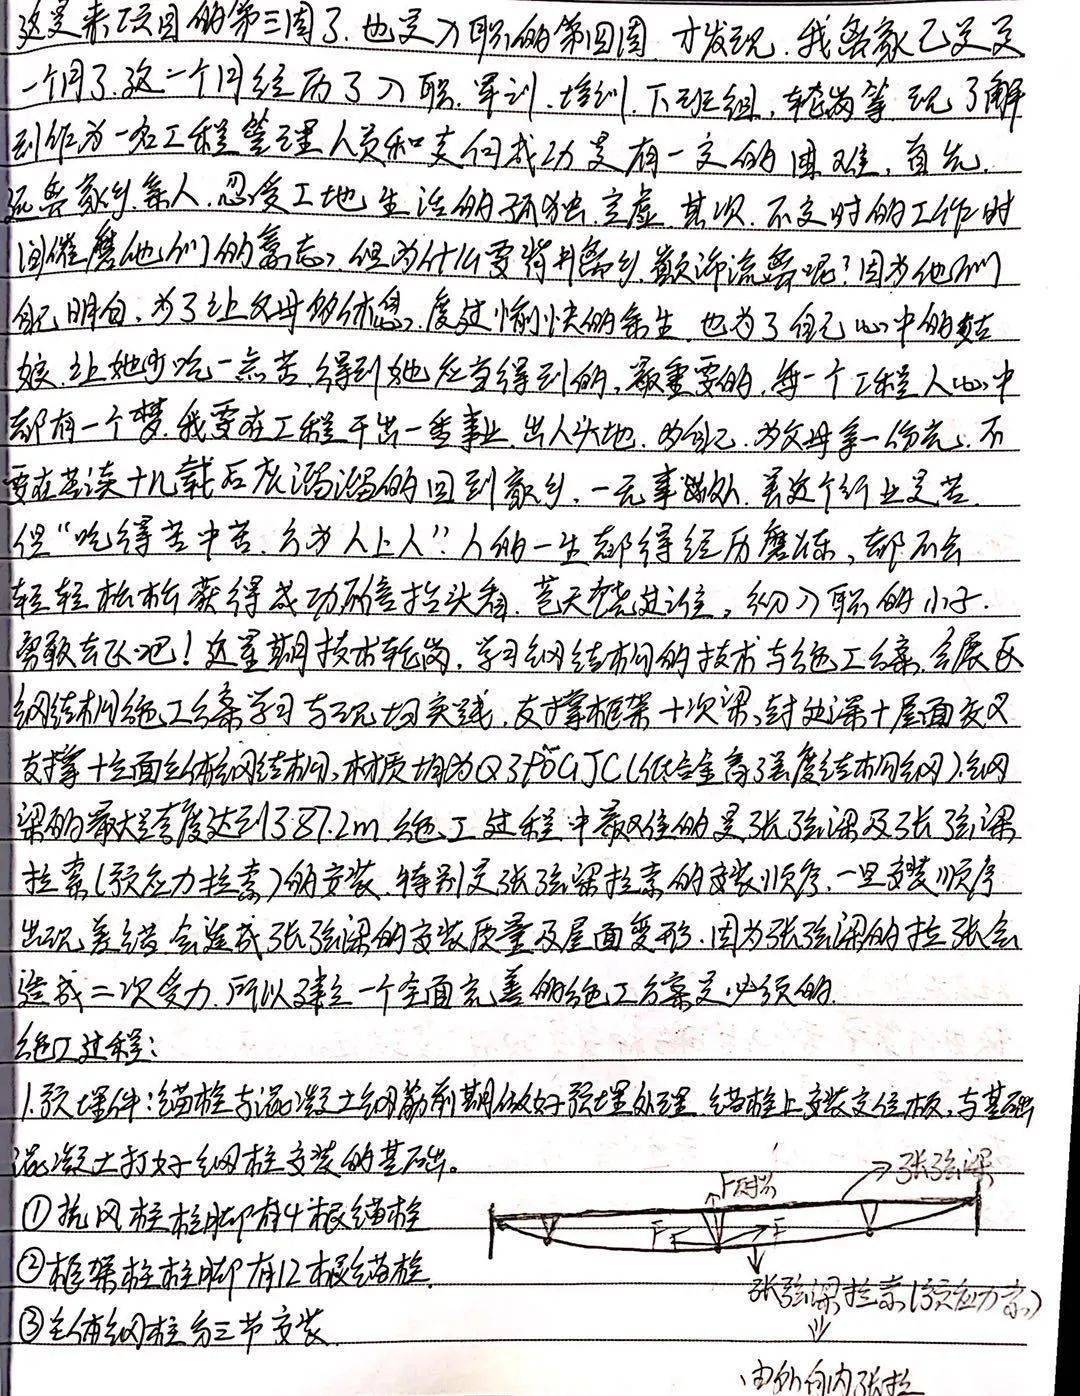 这是来项目的第三周了,也是入职的第四周,才发现,我离家已是是
一个月了,这一个月经历了入职,军训,培训,下班组,轮岗等,现了解
到作为一名工程管理人员和支付成功是有一定的困难,首先,
远离家乡,亲人,忍受工地生活的孤独,空虚,其次,不定时的工作时
间催磨他们的意志,但为什么要背井离乡,颠沛流离呢?因为他们
自己明白,为了让父母的休息,度过愉快的余生,也为了自己心中的姑
娘,让她少吃一点苦,得到她应当得到的,最重要的,每一个工程人心中
都有一个梦,我要在工程干出一番事业,出人头地,为自己,为父母拿一份光,不
要在苦读十几载后灰溜溜的回到家乡,一无事处,虽这个行业是苦,
但“吃得苦中苦,方为人上人”.人的一生都得经历磨炼,都不会
轻轻松松获得成功,抬头看,苍天饶过谁,初入职的小子,
勇敢去飞吧!这星期技术轮岗,学习钢结构的技术与施工方案,会展区
钢结构施工方案学习与现场实践,支撑框架+次梁,封边梁+屋面交叉
支撑+立面主体钢结构,材质均为Q390GJC(低合金高强度结构钢).钢
梁的最大跨度达到387.2m,施工过程中最难的是张弦梁及张弦梁
拉索(预应力拉索)的安装,特别是张弦梁拉索的安装顺序,一旦安装顺序
出现差错,会造成张弦梁的安装质量及屋面变形,因为张弦梁的拉张会
造成二次受力,所以建立一个全面完善的施工方案是必须的.
施工过程:
1.预埋件:锚栓与混凝土钢筋前期做好预埋处理,锚栓上安装定位板,与基础
混凝土打好钢柱安装的基础。
→张弦梁
①抗风柱柱脚有4根锚栓
F F
②框架柱柱脚有12根锚栓.
张弦梁拉索(预应力索)
③主体钢柱分三节安装.
由外向内张拉